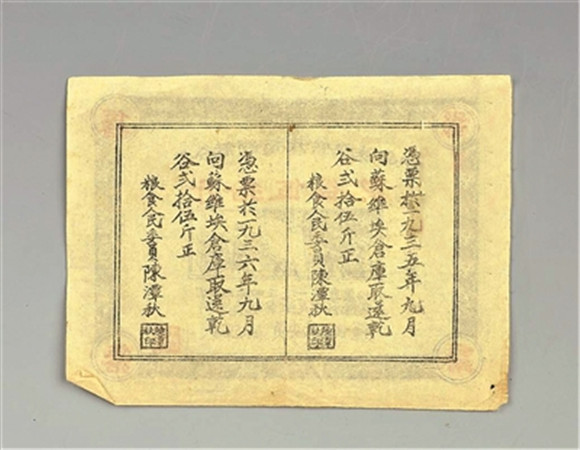 憑票扵一九三五年九月
向蘇維埃倉庫取还乾
谷弍拾伍斤正
粮食人民委員陳潭秋
憑票扵一九三六年九月
向蘇維埃倉庫取还乾
谷弍拾伍斤正
粮食人民委員陳潭秋